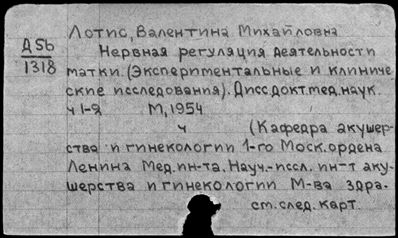 Лотис, Валентина Михайловна
Д56
1318
Нервная регуляция деятельности
матки. (Экспериментальные и клиниче
ские исследования). Дисс.докт.мед.наук.
ч 1-2 М, 1954
ч (Кафедра акушер-
ства и гинекологии 1-го Моск.ордена
Ленина Мед.ин-та. Науч.-иссл. ин-т аку-
шерства и гинекологии М-ва здра.
см.след.карт.